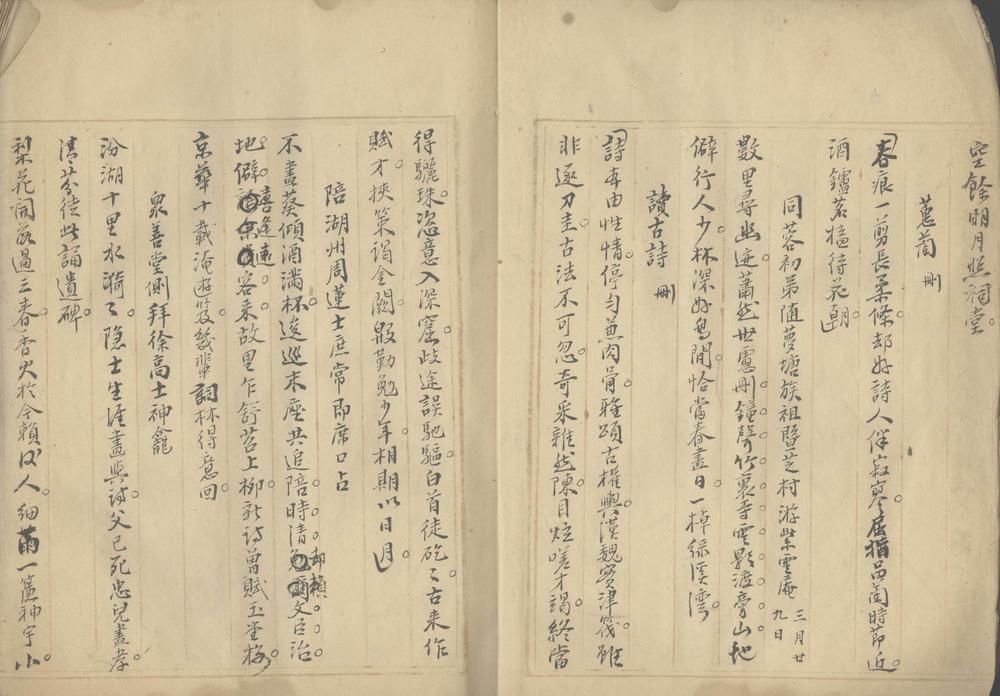 空餘明月照祠堂
蕙蘭 刪
春痕一剪長柔條却好詩人伴寂寥屈指品蘭時節近
酒鑪茗榼待花朝
同蓉初弟隨夢塘族祖暨芝村游紫雲庵 三月廿九日
數里尋幽逕蕭然世慮刪鐘聲竹裏寺雲影渡旁山地
僻行人少林深好鳥閒恰當春晝日一棹綠溪灣
讀古詩 刪
詩本由性情停勻兼肉骨雅頌古權輿漢魏實津筏雖
非逐刀圭古法不可忽奇采雜然陳目炫嗟才竭終當
得驪珠恣意入深窟歧途誤馳驅白首徒矻矻古來作
賦才挾策謁金闕殷勤勉少年相期以日月
陪湖州周蓮士庶常即席口占
不盡葵傾酒滿杯逡巡末座共追陪時清却賴文臣治
地僻喜逢連客來故里乍舒苕上柳新詩曾賦玉堂梅
京華十載淹遊笈幾輩詞林得意回
眾善堂側拜徐高士神龕
汾湖十里水漪漪隱士生涯盡與詩父已死忠兒盡孝
清芬徒此誦遺碑
梨花開放過三春香火於今賴後人細雨一簾神宇小